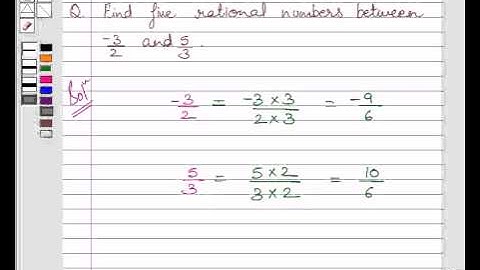 Q. Find five rational numbers between
-3/2 and 5/3.
Solⁿ
-3/2 = -3×3/2×3 = -9/6
5/3 = 5×2/3×2 = 10/6